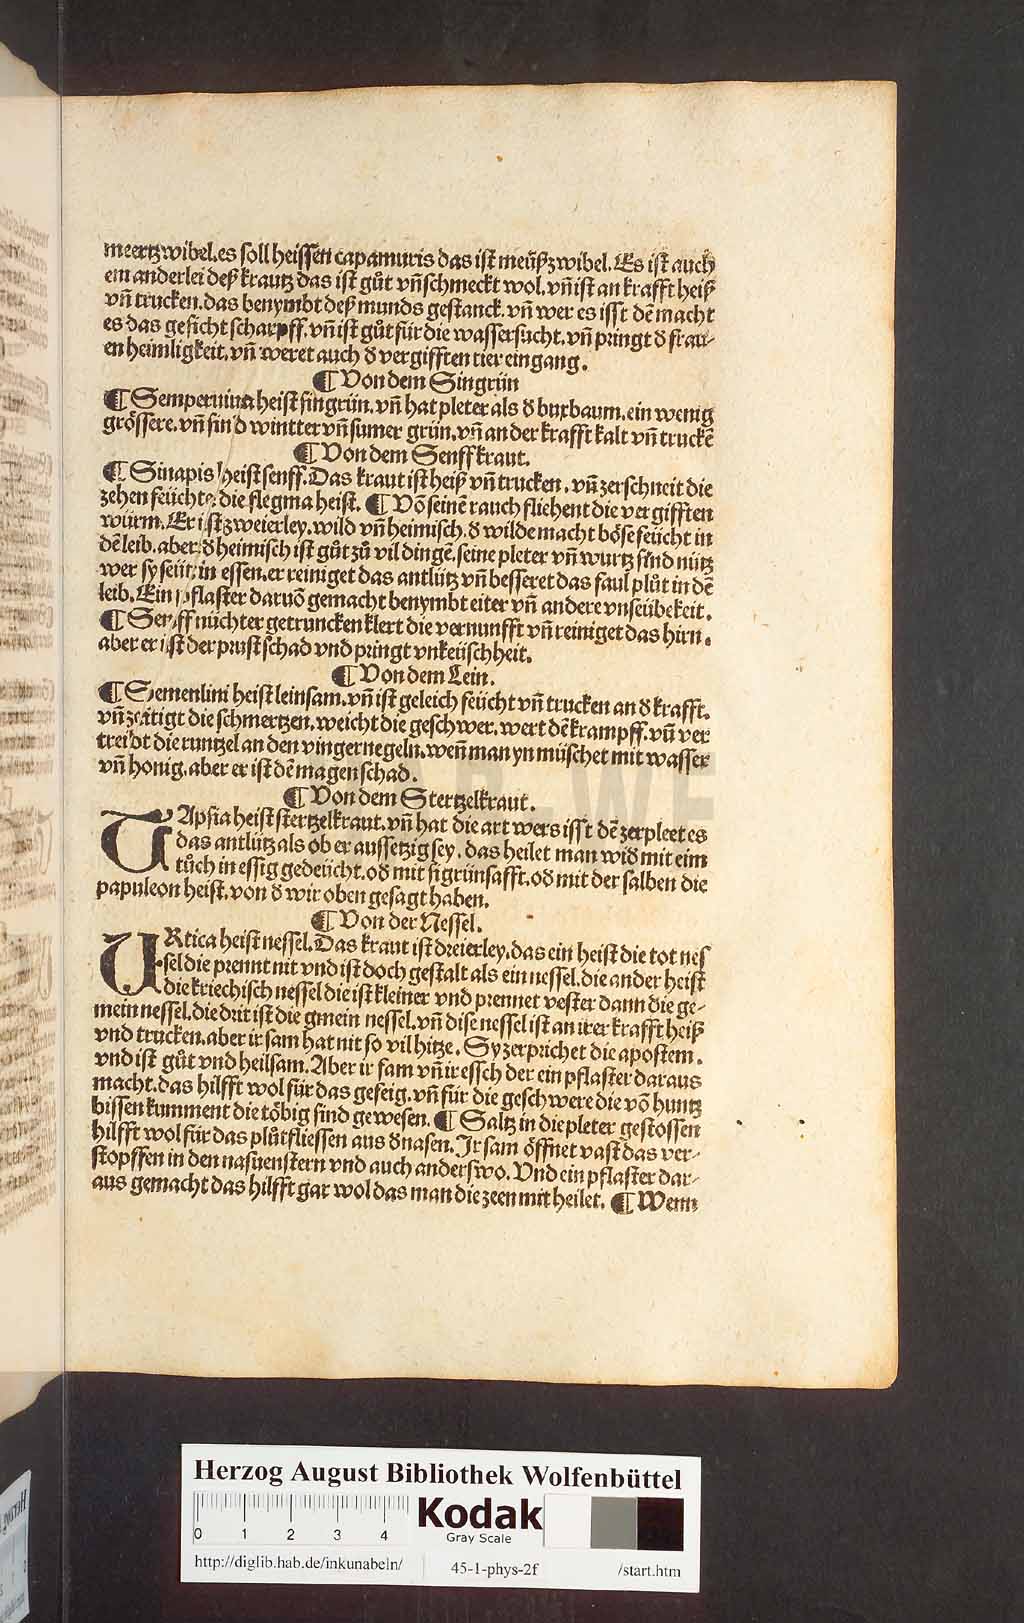 meertzwibel.es soll heissen capamuris das ist meüßzwibel. Es ist auch
ein anderlei deß krautz das ist gůt vñ schmeckt wol. vñ ist an krafft heiß
vñ trucken. das benymbt deß munds gestanck. vñ wer es isst dē macht
es das gesicht scharpff. vñ ist gůt für die wassersucht. vñ pringt d frau-
en heimligkeit. vñ weret auch d vergifften tier eingang.
¶ Von dem Singrün
¶ Semperuiua heist singrün. vñ hat pleter als d buxbaum. ein wenig
grössere. vñ sind wintter vñ sumer grün. vñ an der krafft kalt vñ truckē
¶ Von dem Senffkraut.
¶ Sinapis heist senff. Das kraut ist heiß vñ trucken. vñ zerschneit die
zehen feüchte. die flegma heist. ¶ Võ seinē rauch fliehent die vergifften
würm. Er ist zweierley. wild vñ heimisch. d wilde macht böse feücht in
dē leib. aber d heimisch ist gůt zů vil dingē. seine pleter vñ wurtz sind nütz
wer sy seüt. in essen. er reiniget das antlütz vñ besseret das faul plůt in dē
leib. Ein pflaster daruõ gemacht benymbt eiter vñ andere vnseübekeit.
¶ Senff nüchter getruncken klert die vernunfft vñ reiniget das hirn.
aber er ist der prust schad vnd pringt vnkeüschheit.
¶ Von dem Lein.
¶ Semenlini heist leinsam. vñ ist geleich feücht vñ trucken an d krafft.
vñ zeitigt die schmertzen. weicht die geschwer. wert dē krampff. vñ ver
treibt die runtzel an den vingernegeln. weñ man yn müschet mit wasser
vñ honig. aber er ist dē magen schad.
¶ Von dem Stertzelkraut.
TApsia heist stertzelkraut. vñ hat die art wers isst dē zerpleet es
das antlütz als ob er aussetzig sey. das heilet man wid mit eim
tůch in essig gedeücht. od mit sigrünsafft. od mit der salben die
papuleon heist. von d wir oben gesagt haben.
¶ Von der Nessel.
URtica heist nessel. Das kraut ist dreierley. das ein heist die tot nes
sel die prennt nit vnd ist doch gestalt als ein nessel. die ander heist
die kriechisch nessel die ist kleiner vnd prennet vester dann die ge-
mein nessel. die drit ist die gmein nessel. vñ dise nessel ist an irer krafft heiß
vnd trucken. aber ir sam hat nit so vil hitze. Sy zerprichet die apostem.
vnd ist gůt vnd heilsam. Aber ir sam vñ ir essch der ein pflaster daraus
macht. das hilfft wol für das gefeig. vñ für die geschwere die võ huntz
bissen kumment die töbig sind gewesen. ¶ Saltz in die pleter gestossen
hilfft wol für das plůtfliessen aus d nasen. Ir sam öffnet vast das ver-
stopffen in den nasuenstern vnd auch anderswo. Vnd ein pflaster dar-
aus gemacht das hilfft gar wol das man die zeen mit heilet. ¶ Wenn
HAB WF
Herzog August Bibliothek Wolfenbüttel
0 1 2 3 4
Kodak
Gray Scale
http://diglib.hab.de/inkunabeln/ 45-1-phys-2f /start.htm